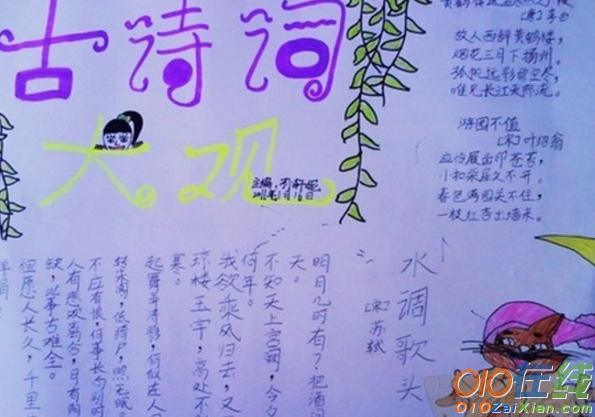 古诗词
大观
主编
故人西辞黄鹤楼，
烟花三月下扬州。
孤帆远影碧空尽，
唯见长江天际流。
游园不值
[宋]叶绍翁
应怜屐齿印苍苔，
小扣柴扉久不开。
春色满园关不住，
一枝红杏出墙来。
水调歌头
[宋]苏轼
明月几时有？把酒问
天。
不知天上宫阙，今夕
何年。
我欲乘风归去，又
琼楼玉宇，高处不
寒。
起舞弄清影，何似在人
转朱阁，低绮户，照无眠
不应有恨，何事长向别时
人有悲欢离合，月有阴
缺，此事古难全。
但愿人长久，千里
010在线
010ZaiXian.com